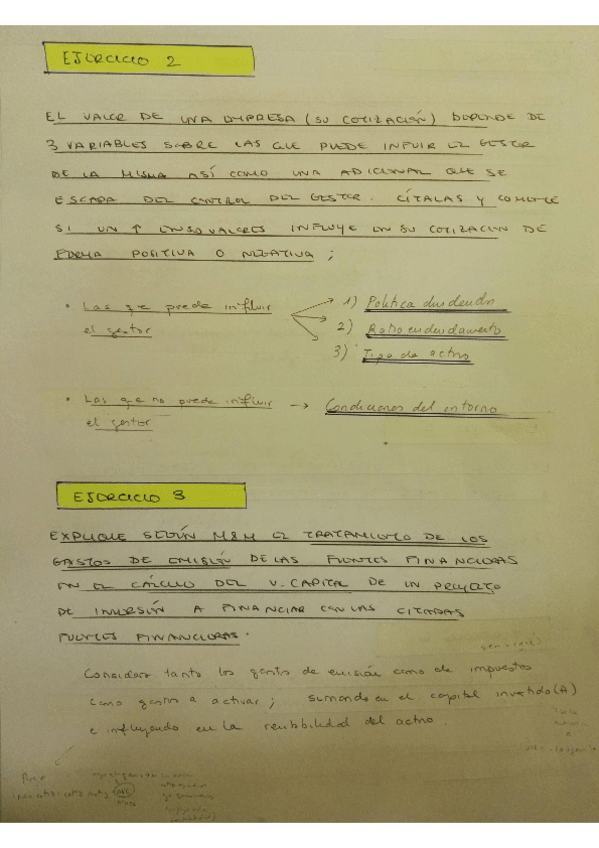 EJERCICIO 2
EL VALOR DE UNA EMPRESA (SU COTIZACIÓN) DEPENDE DE
3 VARIABLES SOBRE LAS QUE PUEDE INFUIR EL GESTOR
DE LA MISMA ASÍ COMO UNA ADICIONAL QUE SE
ESCAPA DEL CONTROL DEL GESTOR. CÍTALAS Y COMENTE
SI UN ↑ EN SUS VALORES INFLUYE EN SU COTIZACIÓN DE
FORMA POSITIVA O NEGATIVA;
• Las que puede influir
el gestor
1) Política dividendos
2) Ratio endeudamiento
3) Tipo de activo
• Las que no puede influir → Condiciones del entorno
el gestor
EJERCICIO 3
EXPLIQUE SEGÚN M&M EL TRATAMIENTO DE LOS
GASTOS DE EMISIÓN DE LAS FUENTES FINANCIERAS
EN EL CÁLCULO DEL V. CAPITAL DE UN PROYECTO
DE INVERSIÓN A FINANCIAR CON LAS CITADAS
FUENTES FINANCIERAS.
Considera tanto los gastos de emisión como de impuestos
como gastos a activar; sumando en el capital invertido (A)
e influyendo en la rentabilidad del activo.